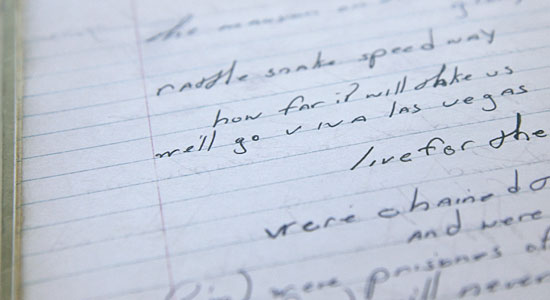 the mansion on
raddle snake speedway
how far it will take us
we'll go viva las vegas
live for the
were chained
and were
were prisones of
will never